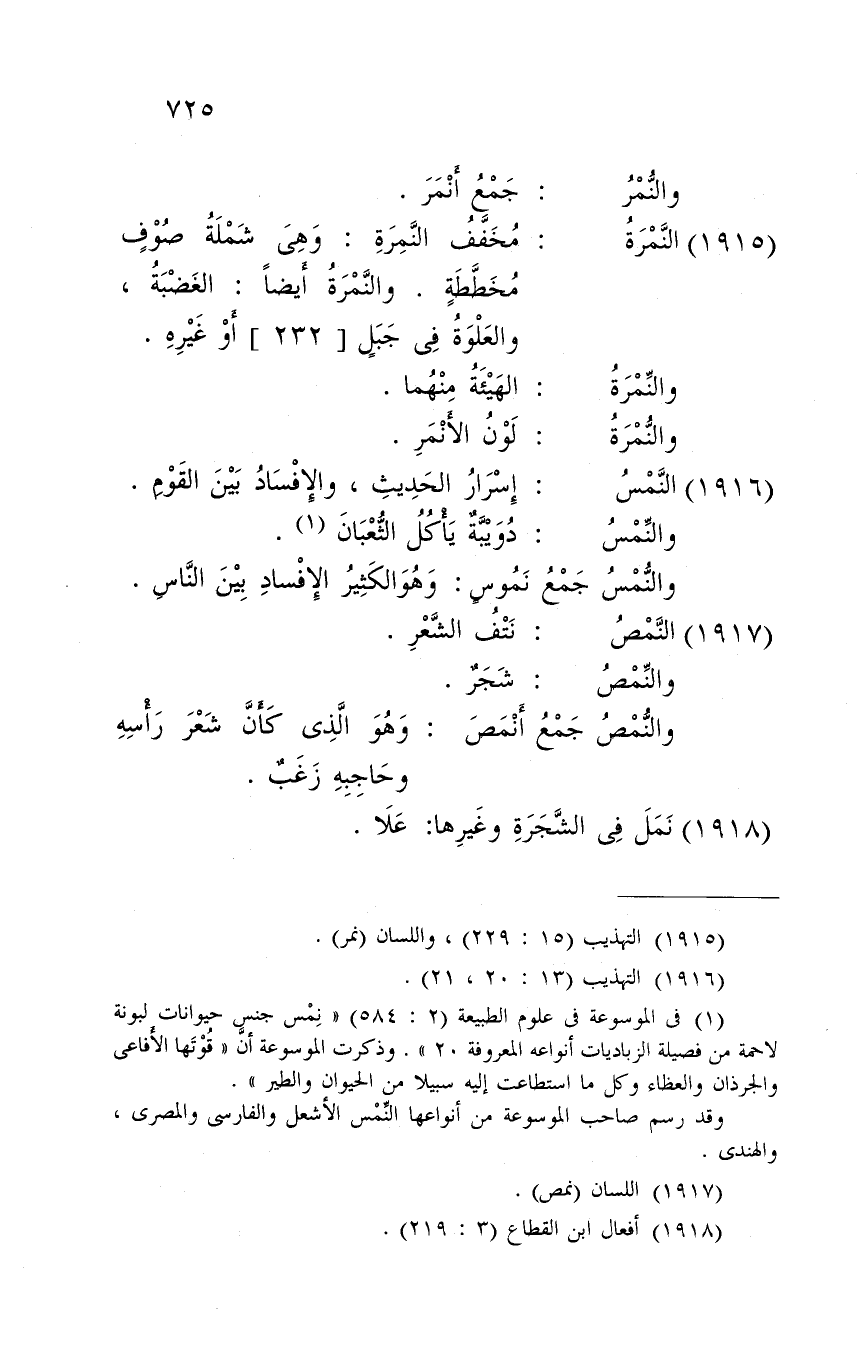 ٧٢٥
والنُّمْرُ : جَمْعُ أَنْمَرَ .
(١٩١٥) النَّمْرَةُ : مُخَفَّفُ النَّمِرَةِ : وَهِىَ شَمْلَةُ صُوْفٍ
مُخَطَّطَةٍ . والنَّمْرَةُ أَيضاً : الغَضْبَةُ ،
والعَلْوَةُ فِى جَبَلٍ [ ٢٣٢ ] أَوْ غَيْرِهِ .
والنِّمْرَةُ : الهَيْئَةُ مِنْهُما .
والنُّمْرَةُ : لَوْنُ الأَنْمَرِ .
(١٩١٦) النَّمْسُ : إِسْرَارُ الحَدِيثِ ، والإِفْسَادُ بَيْنَ القَوْمِ .
والنِّمْسُ : دُوَيْبَّةٌ يَأْكُلُ الثُّعْبَانَ (١) .
والنُّمْسُ جَمْعُ نَمُوسٍ : وَهُوَالكَثِيرُ الإِفْسادِ بِيْنَ النَّاسِ .
(١٩١٧) النَّمْصُ : نَتْفُ الشَّعْرِ .
والنِّمْصُ : شَجَرٌ .
والنُّمْصُ جَمْعُ أَنْمَصَ : وَهُوَ الَّذِى كَأَنَّ شَعْرَ رَأْسِهِ
وحَاجِبِهِ زَغَبٌ .
(١٩١٨) نَمَلَ فِى الشَّجَرَةِ وغَيرِها: عَلَا .
(١٩١٥) التهذيب (١٥ : ٢٢٩) ، واللسان (نمر) .
(١٩١٦) التهذيب (١٣ : ٢٠ ، ٢١) .
(١) فى الموسوعة فى علوم الطبيعة (٢ : ٥٨٤) « نِمْس جنس حيوانات لبونة
لاحمة من فصيلة الزباديات أنواعه المعروفة ٢٠ » . وذكرت الموسوعة أنَّ « قُوْتَها الأَفاعى
والجرذان والعظاء وكل ما استطاعت إليه سبيلا من الحيوان والطير » .
وقد رسم صاحب الموسوعة من أنواعها النِّمْس الأشعل والفارسى والمصرى ،
والهندى .
(١٩١٧) اللسان (نمص) .
(١٩١٨) أفعال ابن القطاع (٣ : ٢١٩) .